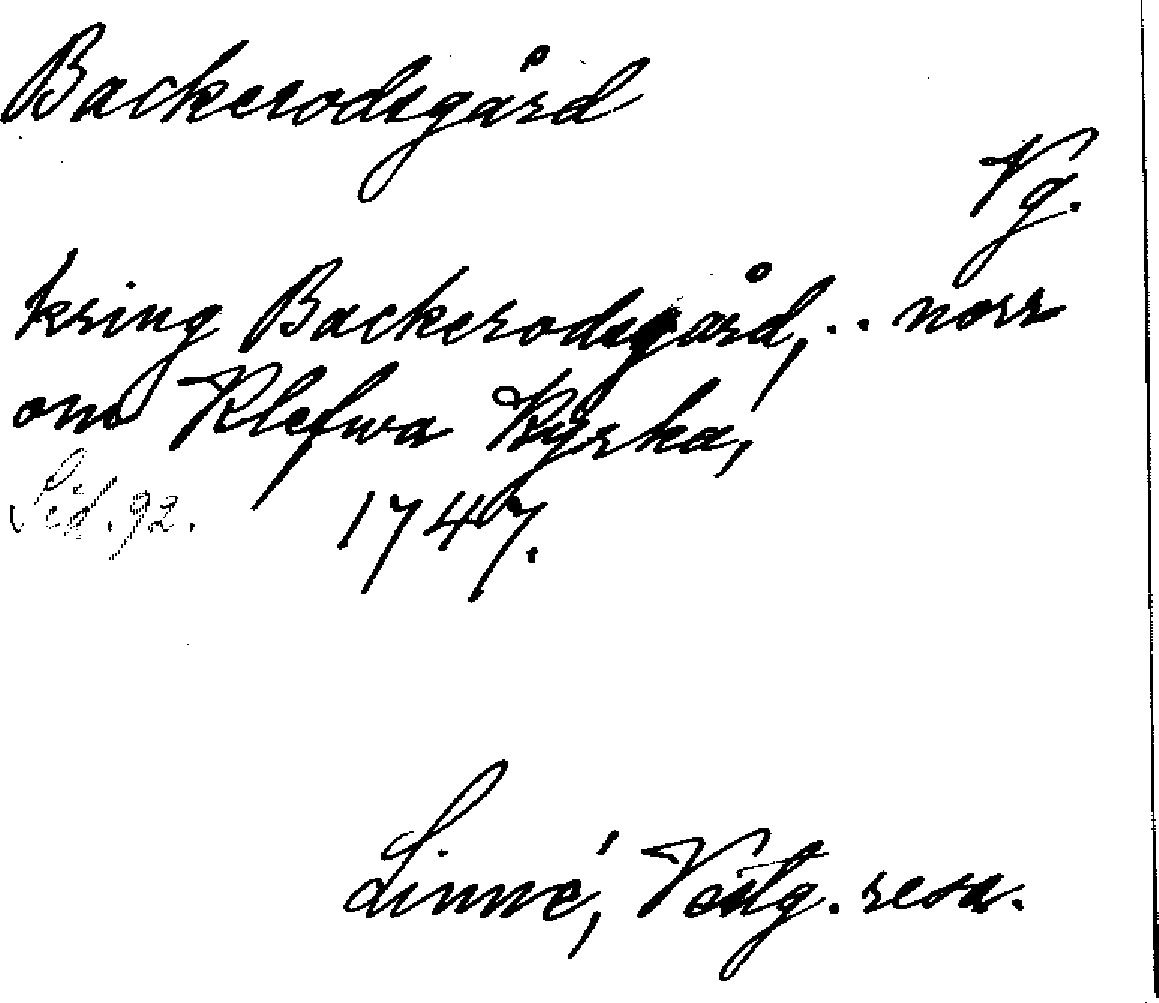 Backerodsgård
Vg.
kring Backerodsgård, .. norr
om Klefwa Kyrka,
Sid. 92. 1747.
Linné, Vestg. resa.